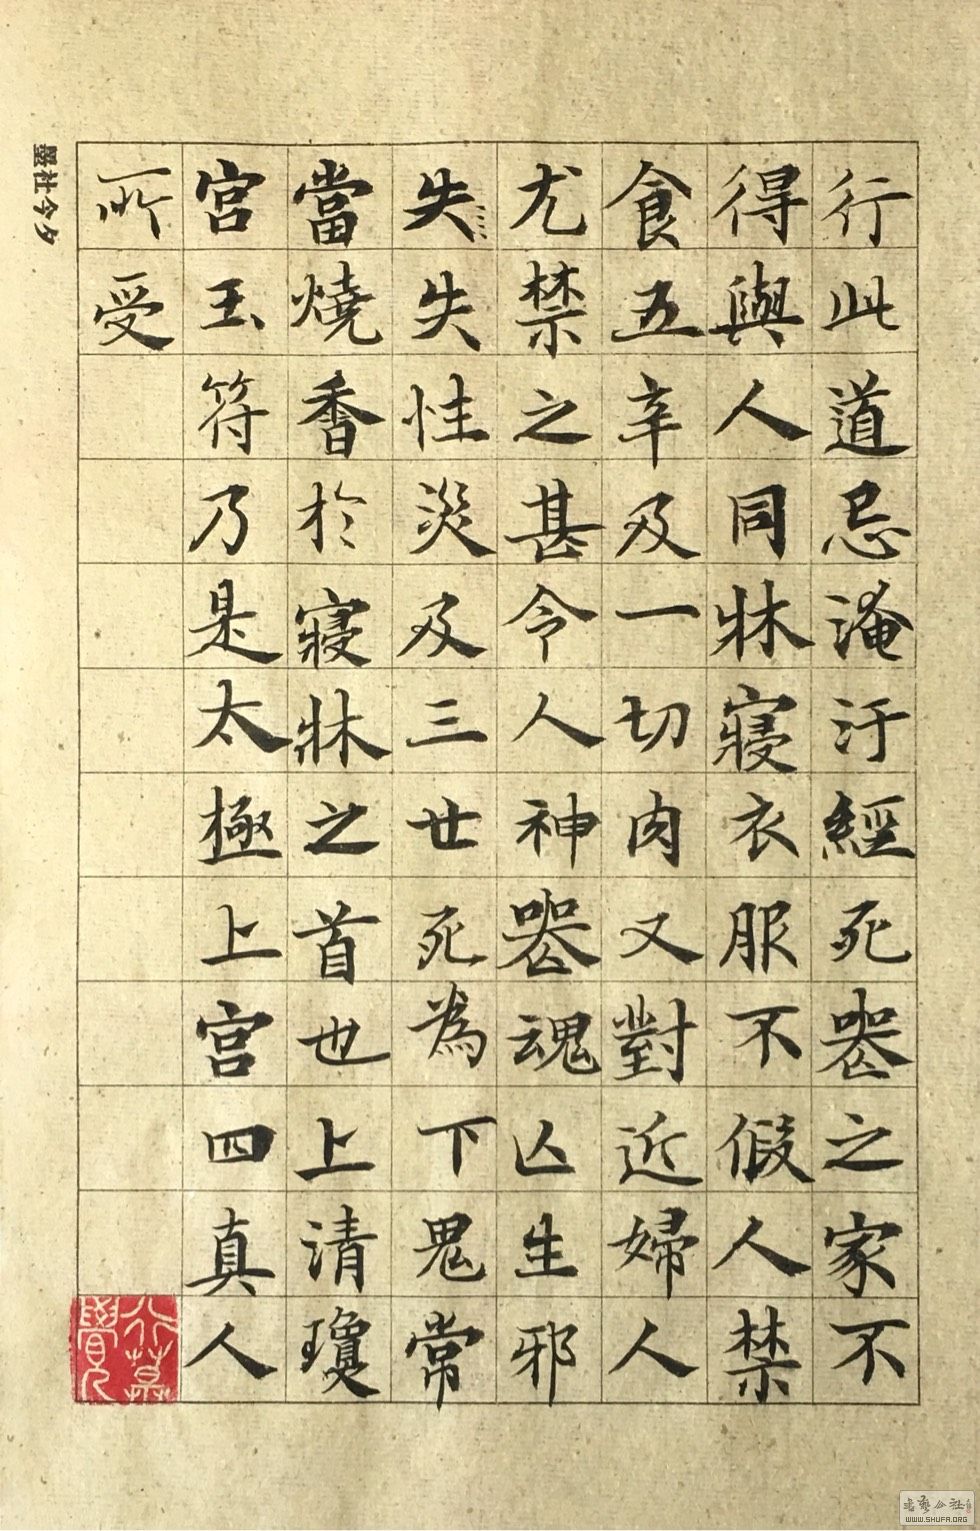 行此道忌淹汙經死喪之家不
得與人同牀寢衣服不假人禁
食五辛及一切肉又對近婦人
尤禁之甚令人神喪魂亡生邪
失失性災及三世死為下鬼常
當燒香於寢牀之首也上清瓊
宮玉符乃是太極上宮四真人
所受
墨社今夕
書藝公社
WWW.SHUFA.ORG